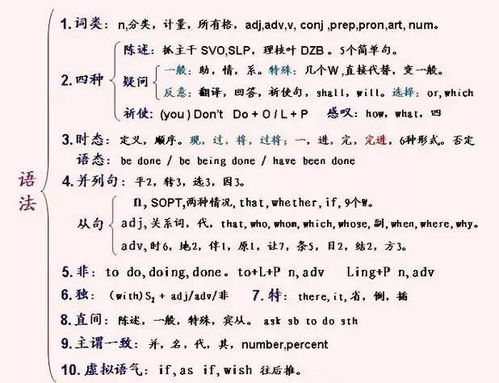 语法
1. 词类: n,分类, 计量, 所有格, adj,adv,v, conj ,prep,pron,art, num.
2.四种
陈述: 抓主干 SVO,SLP, 理枝叶 DZB 。5个简单句.
疑问
一般: 助, 情, 系. 特殊: 几个W,直接代替, 变一般.
反意: 翻译, 回答, 祈使句, shall, will. 选择: or,which
祈使: (you) Don't Do + O / L + P 感叹: how, what, 四
3.时态: 定义, 顺序. 现, 过, 将, 过将; 一, 进, 完, 完进, 6种形式. 否定
语态: be done / be being done / have been done
4.并列句: 平2, 转3, 选3, 因3.
从句
n, SOPT,两种情况, that, whether, if, 9个W.
adj,关系词, 代, that, who, whom, which, whose, 副, when, where, why.
adv, 时6, 地2, 伴1, 原1, 让7, 条5, 目2, 结2, 方3.
5. 非: to do, doing, done。 to+L+P n, adv Ling+P n, adv
6.独: (with) S₂ + adj/adv/非 7. 特: there, it, 省, 倒, 插
8.直间: 陈述, 一般, 特殊, 宾从. ask sb to do sth
9.主谓一致: 并, 名, 代, 其, number,percent
10. 虚拟语气: if, as if, wish 往后推.